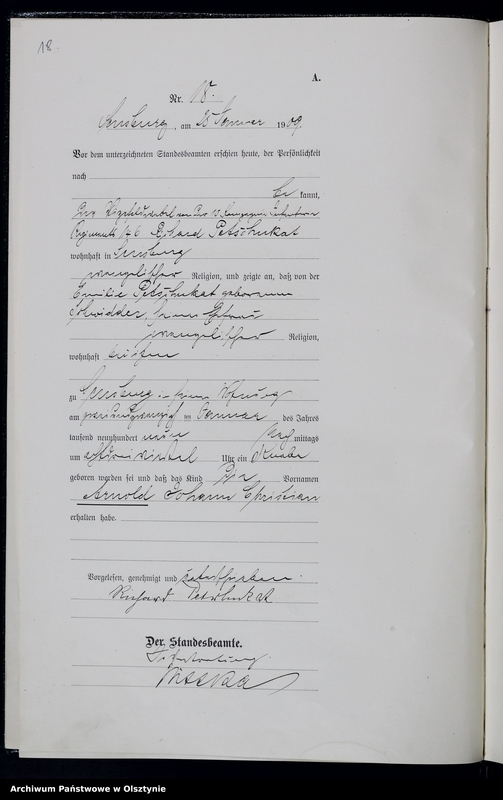 18.
A.
Nr. 18.
Sensburg, am 25 Januar 1909.
Vor dem unterzeichneten Standesbeamten erschien heute, der Persönlichkeit
nach
be kannt,
Der Vizefeldwebel von der
Regiments 146 Richard Petschukat
wohnhaft in Sensburg
evangelischer Religion, und zeigte an, daß von der
Emilie Petschukat geborenen
seiner Ehefrau
evangelischer Religion,
wohnhaft bei ihm
zu Sensburg in seiner Wohnung
am zweiundzwanzigsten Januar des Jahres
tausend neunhundert neun Nach mittags
um Uhr ein Knabe
geboren worden sei und daß das Kind die Vornamen
Arnold Johann Christian
erhalten habe.
Vorgelesen, genehmigt und unterschrieben
Richard Petschukat
Der Standesbeamte.
In Vertretung.
Archiwum Państwowe w Olsztynie